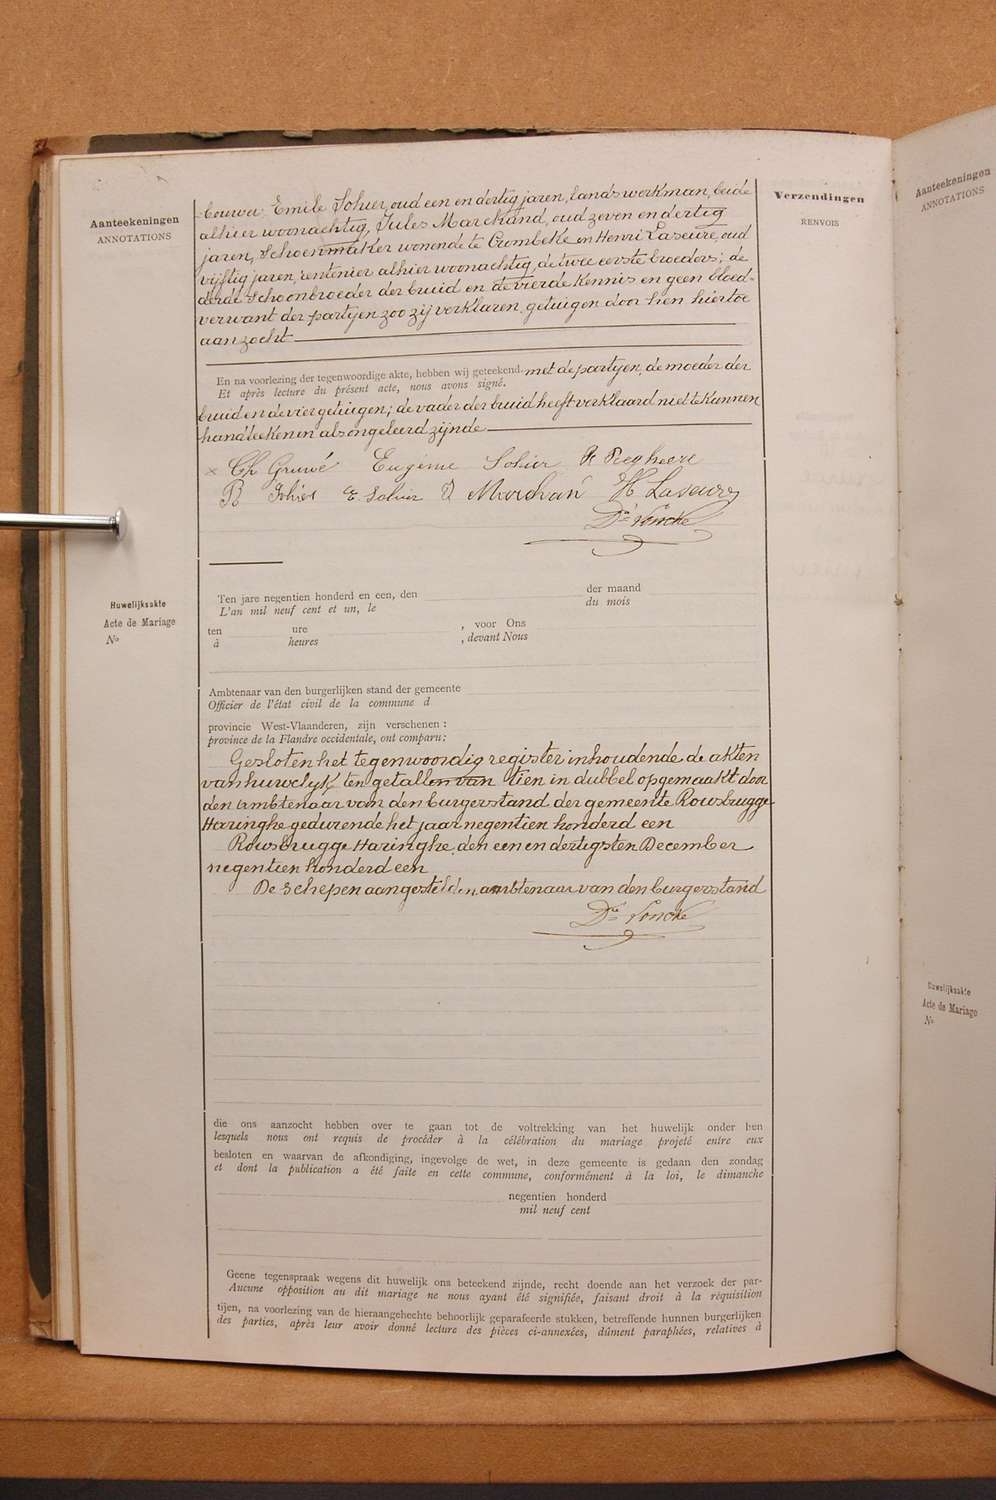 Aanteekeningen
ANNOTATIONS
Verzendingen
RENVOIS
bouwer, Emile Sohier, oud een en dertig jaren, landswerkman, beide
alhier woonachtig, Jules Marchand, oud zeven en dertig
jaren, schoenmaker wonende te Crombeke en Henri Laseure, oud
vijftig jaren, rentenier alhier woonachtig, de twee eerste broeders; de
derde schoonbroeder der bruid en de vierde kennis en geen bloed-
verwant der partijen zoo zij verklaren, getuigen door hen hiertoe
aanzocht
En na voorlezing der tegenwoordige akte, hebben wij geteekend met de partijen, de moeder der
Et après lecture du présent acte, nous avons signé.
bruid en de vier getuigen; de vader der bruid heeft verklaard niet te kunnen
handteekenen als ongeleerd zijnde
Ch Gruwé Eugénie Sohier
R E. Sohier J Marchand H Laseure
Loncke
Huwelijksakte
Acte de Mariage
No
Ten jare negentien honderd en een, den der maand
L'an mil neuf cent et un, le du mois
ten ure , voor Ons
à heures , devant Nous
Ambtenaar van den burgerlijken stand der gemeente
Officier de l'état civil de la commune d
provincie West-Vlaanderen, zijn verschenen :
province de la Flandre occidentale, ont comparu:
Gesloten het tegenwoordig register inhoudende de akten
van huwelijk ten getallen van tien in dubbel opgemaakt door
den ambtenaar van den burgerstand der gemeente Rousbrugge
Haringhe gedurende het jaar negentien honderd een
Rousbrugge Haringhe, den een en dertigsten December
negentien honderd een
De Schepen aangestelden ambtenaar van den burgerstand
Loncke
die ons aanzocht hebben over te gaan tot de voltrekking van het huwelijk onder hen
lesquels nous ont requis de procéder à la célébration du mariage projeté entre eux
besloten en waarvan de afkondiging, ingevolge de wet, in deze gemeente is gedaan den zondag
et dont la publication a été faite en cette commune, conformément à la loi, le dimanche
negentien honderd
mil neuf cent
Geene tegenspraak wegens dit huwelijk ons beteekend zijnde, recht doende aan het verzoek der par-
Aucune opposition au dit mariage ne nous ayant été signifiée, faisant droit à la réquisition
tijen, na voorlezing van de hieraangehechte behoorlijk geparafeerde stukken, betreffende hunnen burgerlijken
des parties, après leur avoir donné lecture des pièces ci-annexées, dûment paraphées, relatives à
Aanteekeningen
ANNOTATIONS
Huwelijksakte
Acte de Mariage
No